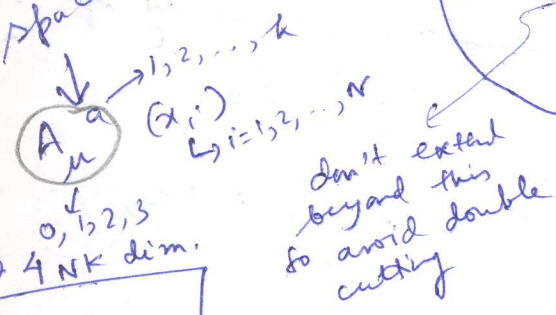 spa
→ 1, 2, ..., k
A_μ^a (x_i)
↳ i = 1, 2, ..., N
0, 1, 2, 3
4 NK dim.
don't extend
beyond this
so avoid double
cutting